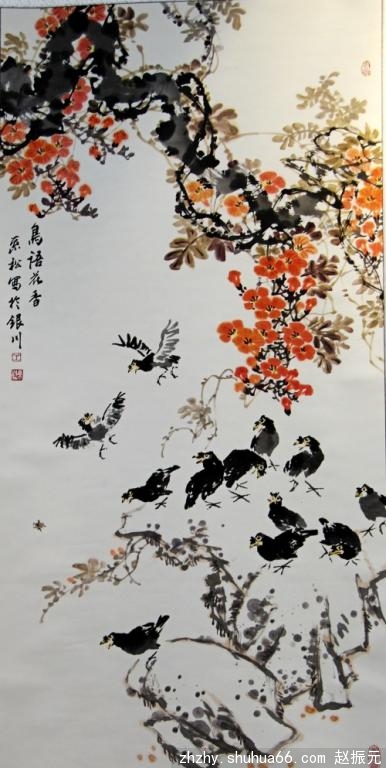 鳥語花香
松寫於銀川
zhzhy.shuhua66.com 赵振元